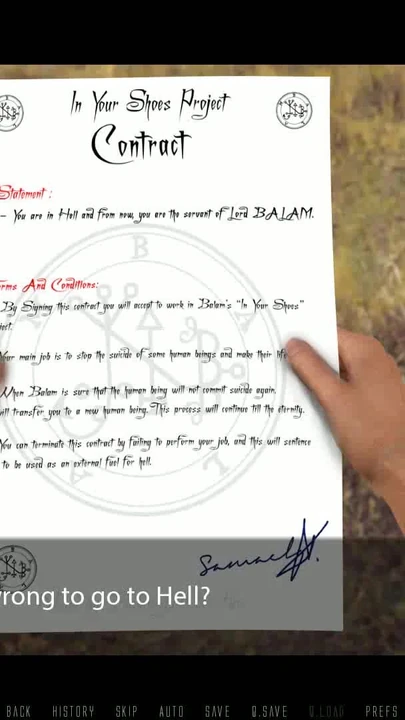 In Your Shoes Project
Contract
Statement :
- You are in Hell and from now, you are the servant of Lord BALAM.
rms And Conditions:
By Signing this contract you will accept to work in Balam's "In Your Shoes"
ject.
Your main job is to stop the suicide of some human beings and make their life
When Balam is sure that the human being will not commit suicide again,
will transfer you to a new human being. This process will continue till the eternity.
You can terminate this contract by failing to perform your job, and this will sentence
to be used as an external fuel for hell.
Samael
wrong to go to Hell?
BACK HISTORY SKIP AUTO SAVE Q.SAVE Q.LOAD PREFS